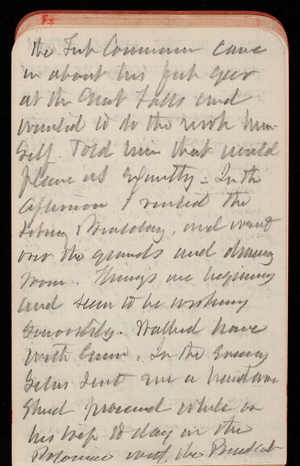 the Fish Commissioner came
in about his fish
at the Great Falls and
wanted to do the work him
self. Told him that would
please us exactly. In the
afternoon I visited the
Library Building, and went
over the grounds and drawing
room. Things are beginning
and seem to be working
smoothly. Walked home
with Green. In the Evening
sent me a handsome
procured while on
his trip to day on the
Potomac with the President